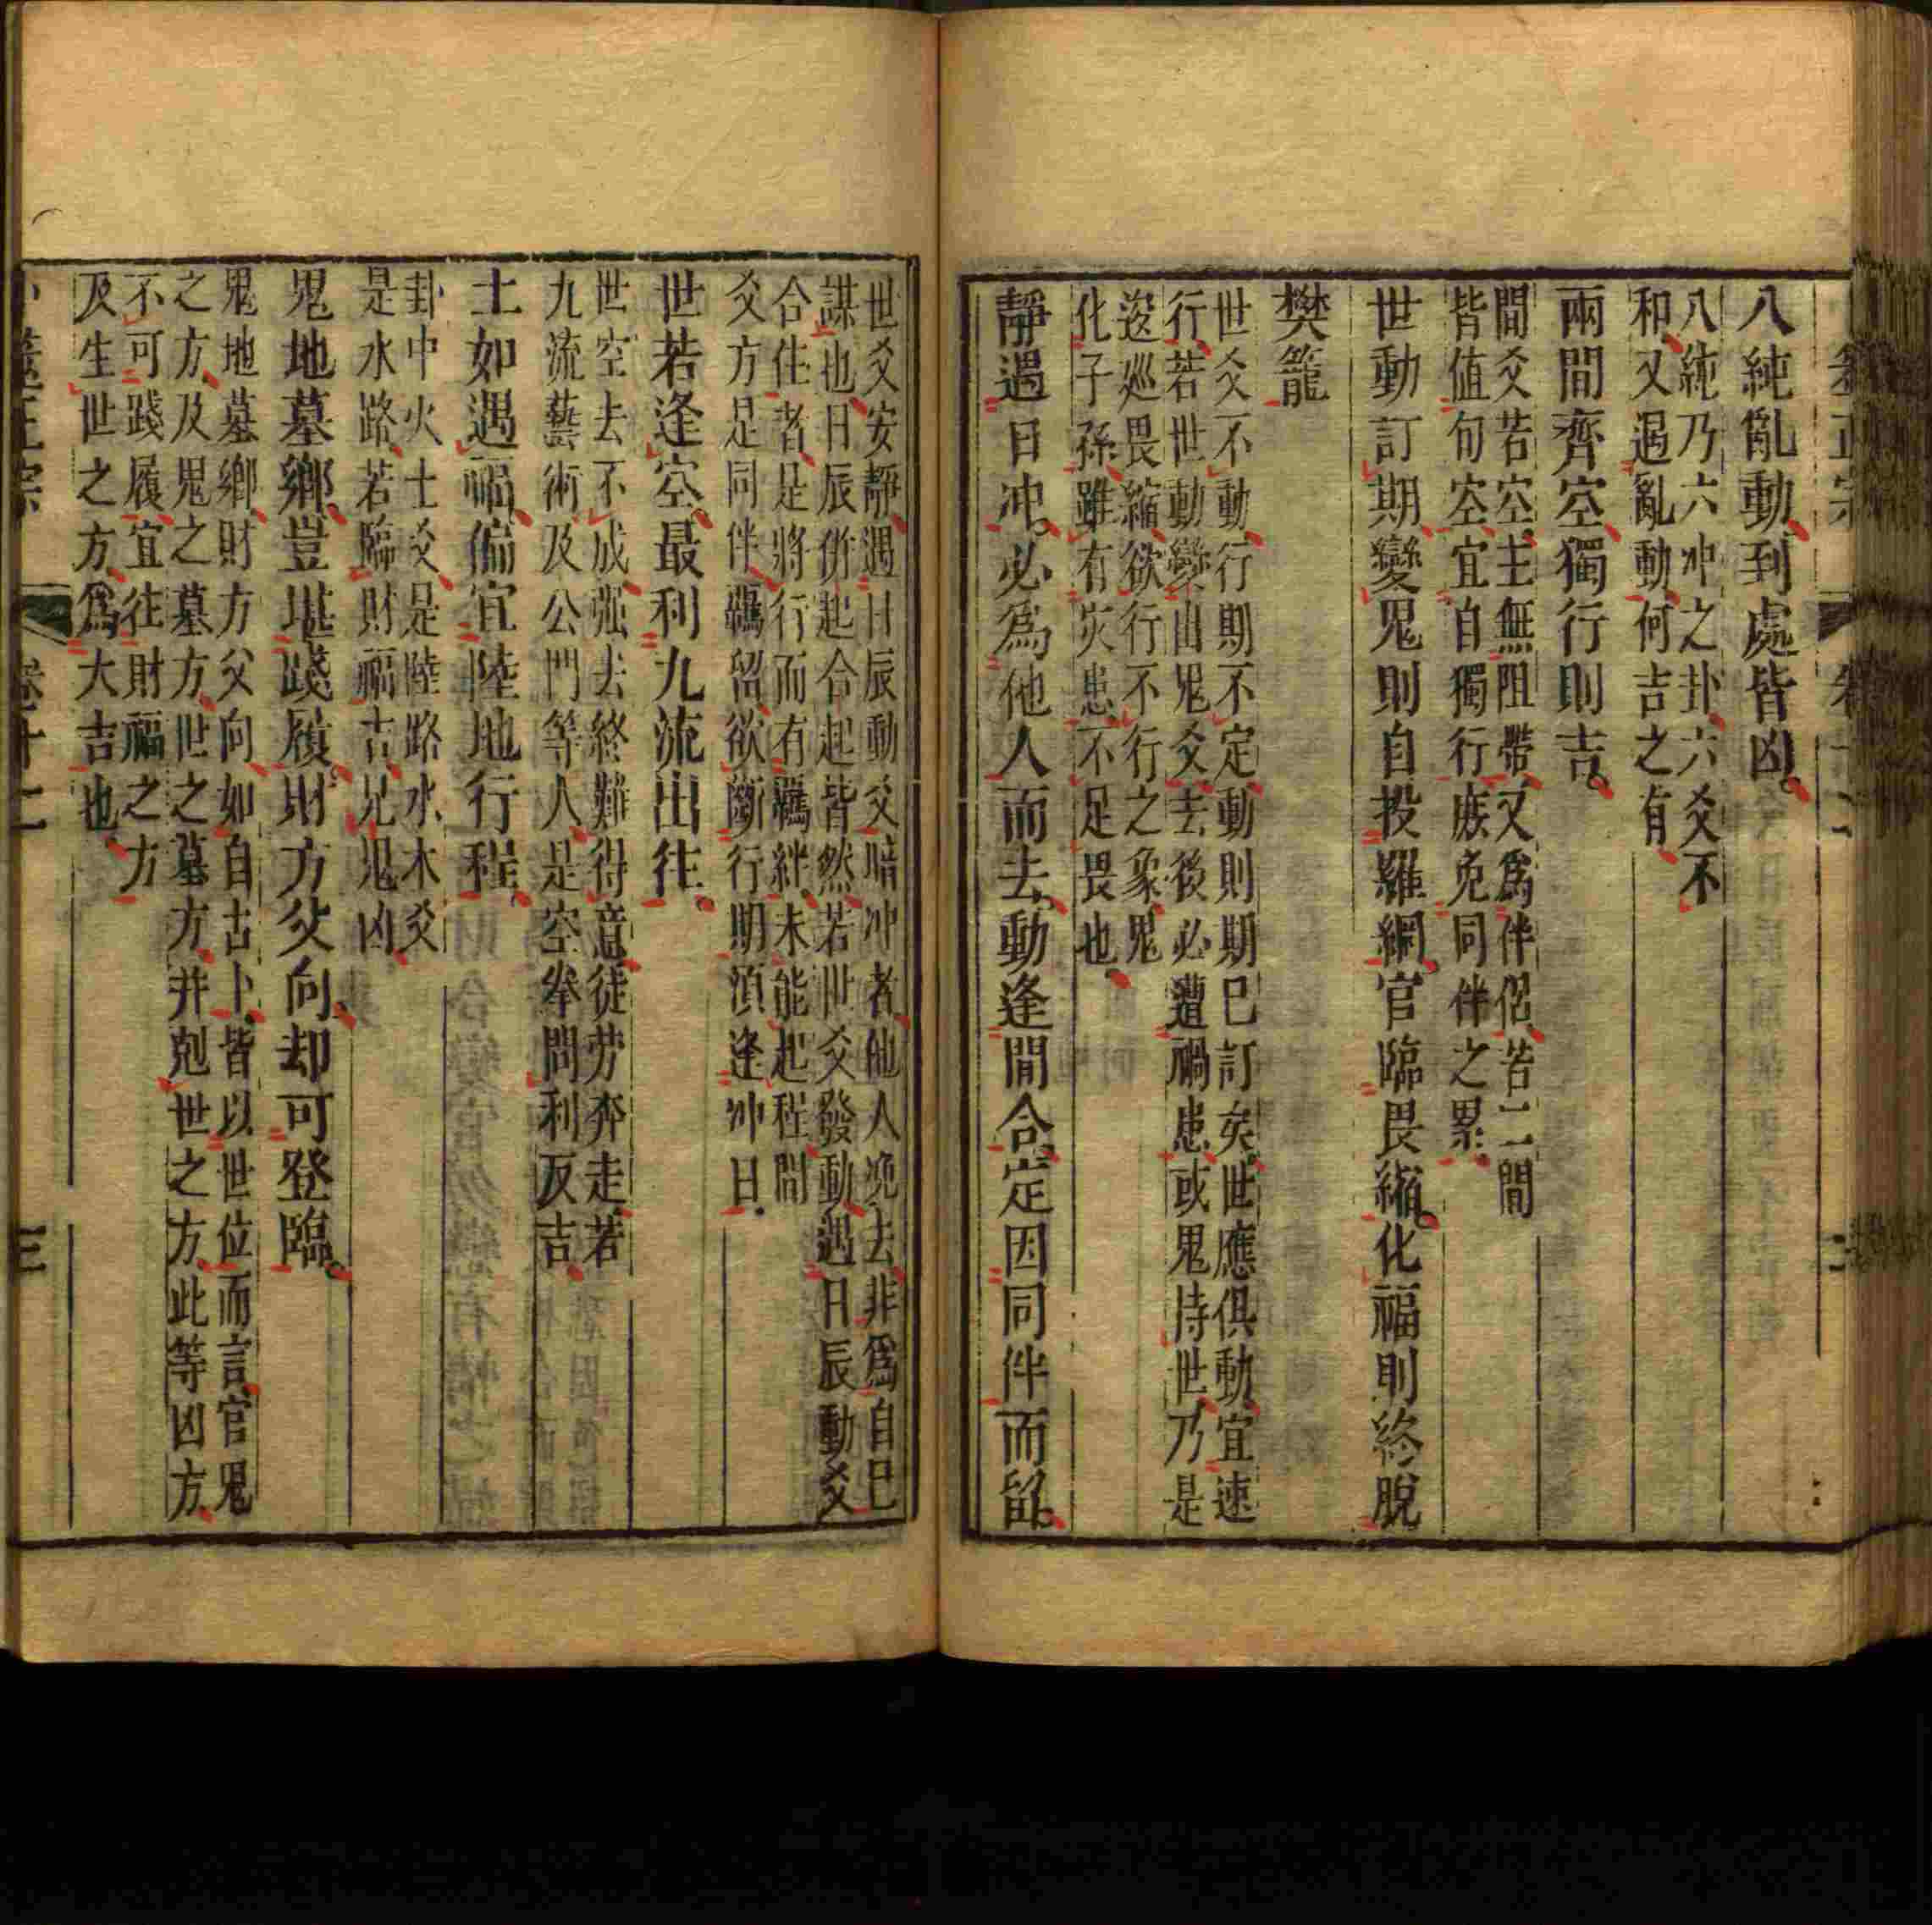 八純亂動到處皆凶
八純乃六冲之卦六爻不
和又遇亂動何吉之有
兩間齊空獨行則吉
間爻若空主無阻帶又爲伴侶若二間
皆值旬空宜自獨行庻免同伴之累
世動訂期變鬼則自投羅網官臨畏縮化福則終脫
樊籠
世爻不動行期不定動則期已訂矣世應俱動宜速
行若世動變出鬼爻去後必遭禍患或鬼持世乃是
逡巡畏縮欲行不行之象鬼
化子孫雖有灾患不足畏也
靜遇日冲必爲他人而去動逢間合定因同伴而留
世爻安靜遇日辰動爻暗冲者他人浼去非爲自己
謀也日辰併起合起皆然若世爻發動遇日辰動爻
合住者是將行而有羈絆未能起程間
爻方是同伴羈留欲斷行期須逢冲日
世若逢空最利九流出往
世空去不成强去終難得意徒劳奔走若
九流藝術及公門等人是空拳問利反吉
土如遇福偏宜陸地行程
卦中火土爻是陸路水木爻
是水路若臨財福吉兄鬼凶
鬼地墓鄉豈堪踐履財方父向却可登臨
鬼地墓鄉財方父向如自古卜皆以世位而言官鬼
之方及鬼之墓方世之墓方并剋世之方此等凶方
不可踐履宜往財福之方
及生世之方爲大吉也
卷十二
三